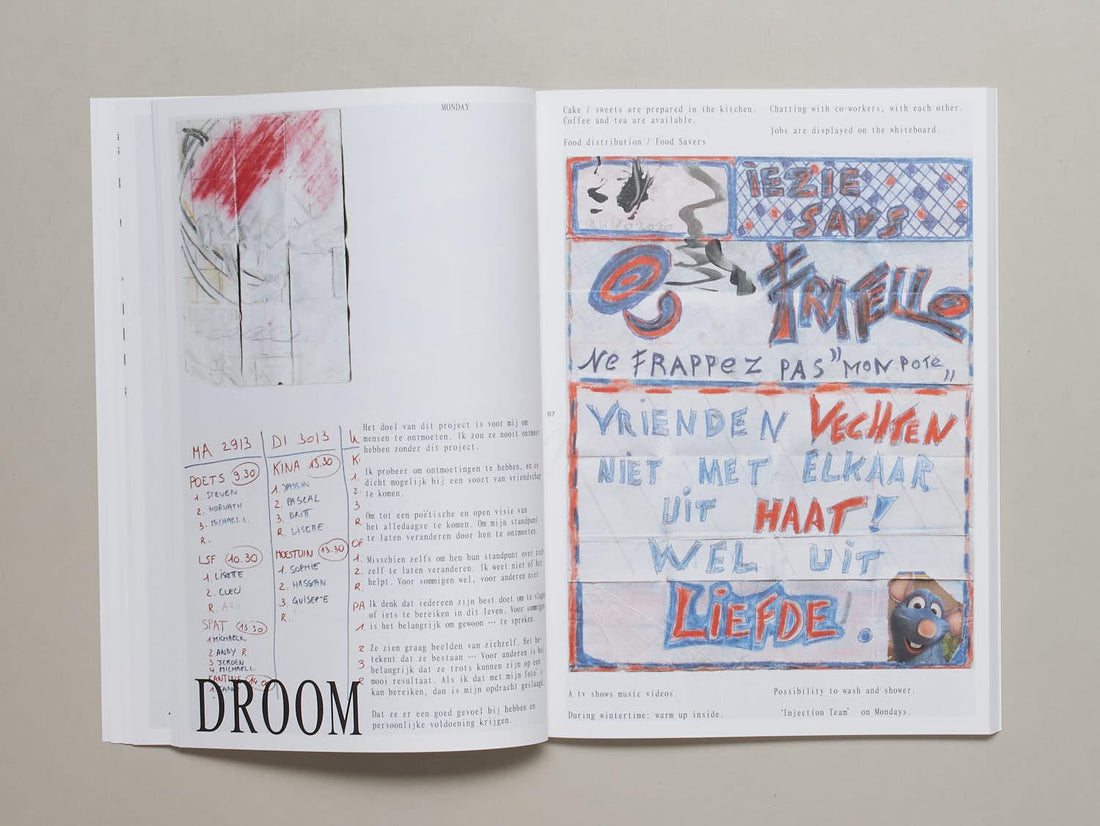 MONDAY
MA 29/3
POETS 9.30
1. STEVEN
2. HORVATH
3. MICHAEL L.
R.
LSF 10.30
1. LISETTE
2. CLECI
R.
SPAT 13.30
1 MICHAEL
2 ANDY R
3 JEROEN
4 MICHAEL L.
KANTINE
DI 30/3
KINA 13.30
1. YASSIN
2. PASCAL
3. BRITT
R. LISETTE
MOESTUIN 13.30
1. SOPHIE
2. HASSAN
3 GUISEPPE
R.
DROOM
Het doel van dit project is voor mij om
mensen te ontmoeten. Ik zou ze nooit ontmoet
hebben zonder dit project.
Ik probeer om ontmoetingen te hebben, en zo
dicht mogelijk bij een soort van vriendschap
te komen.
Om tot een poëtische en open visie van
het alledaagse te komen. Om mijn standpunt
te laten veranderen door hen te ontmoeten.
Misschien zelfs om hen hun standpunt over zich
zelf te laten veranderen. Ik weet niet of het
helpt. Voor sommigen wel, voor anderen niet.
Ik denk dat iedereen zijn best doet om te slagen
of iets te bereiken in dit leven. Voor sommigen
is het belangrijk om gewoon ··· te spreken.
Ze zien graag beelden van zichzelf. Het be-
tekent dat ze bestaan ··· Voor anderen is het
belangrijk dat ze trots kunnen zijn op een
mooi resultaat. Als ik dat met mijn foto's
kan bereiken, dan is mijn opdracht geslaagd.
Dat ze er een goed gevoel bij hebben en
persoonlijke voldoening krijgen.
57
Cake / sweets are prepared in the kitchen.
Coffee and tea are available.
Food distribution / Food Savers
Chatting with co-workers, with each other.
Jobs are displayed on the whiteboard.
iEZiE
SAYS
NE FRAPPEZ PAS "MON POTE"
VRiENDEN VECHTEN
NiET MET ELKAAR
UiT HAAT!
WEL UiT
LiEFDE.
A tv shows music videos.
During wintertime: warm up inside.
Possibility to wash and shower.
'Injection Team' on Mondays.